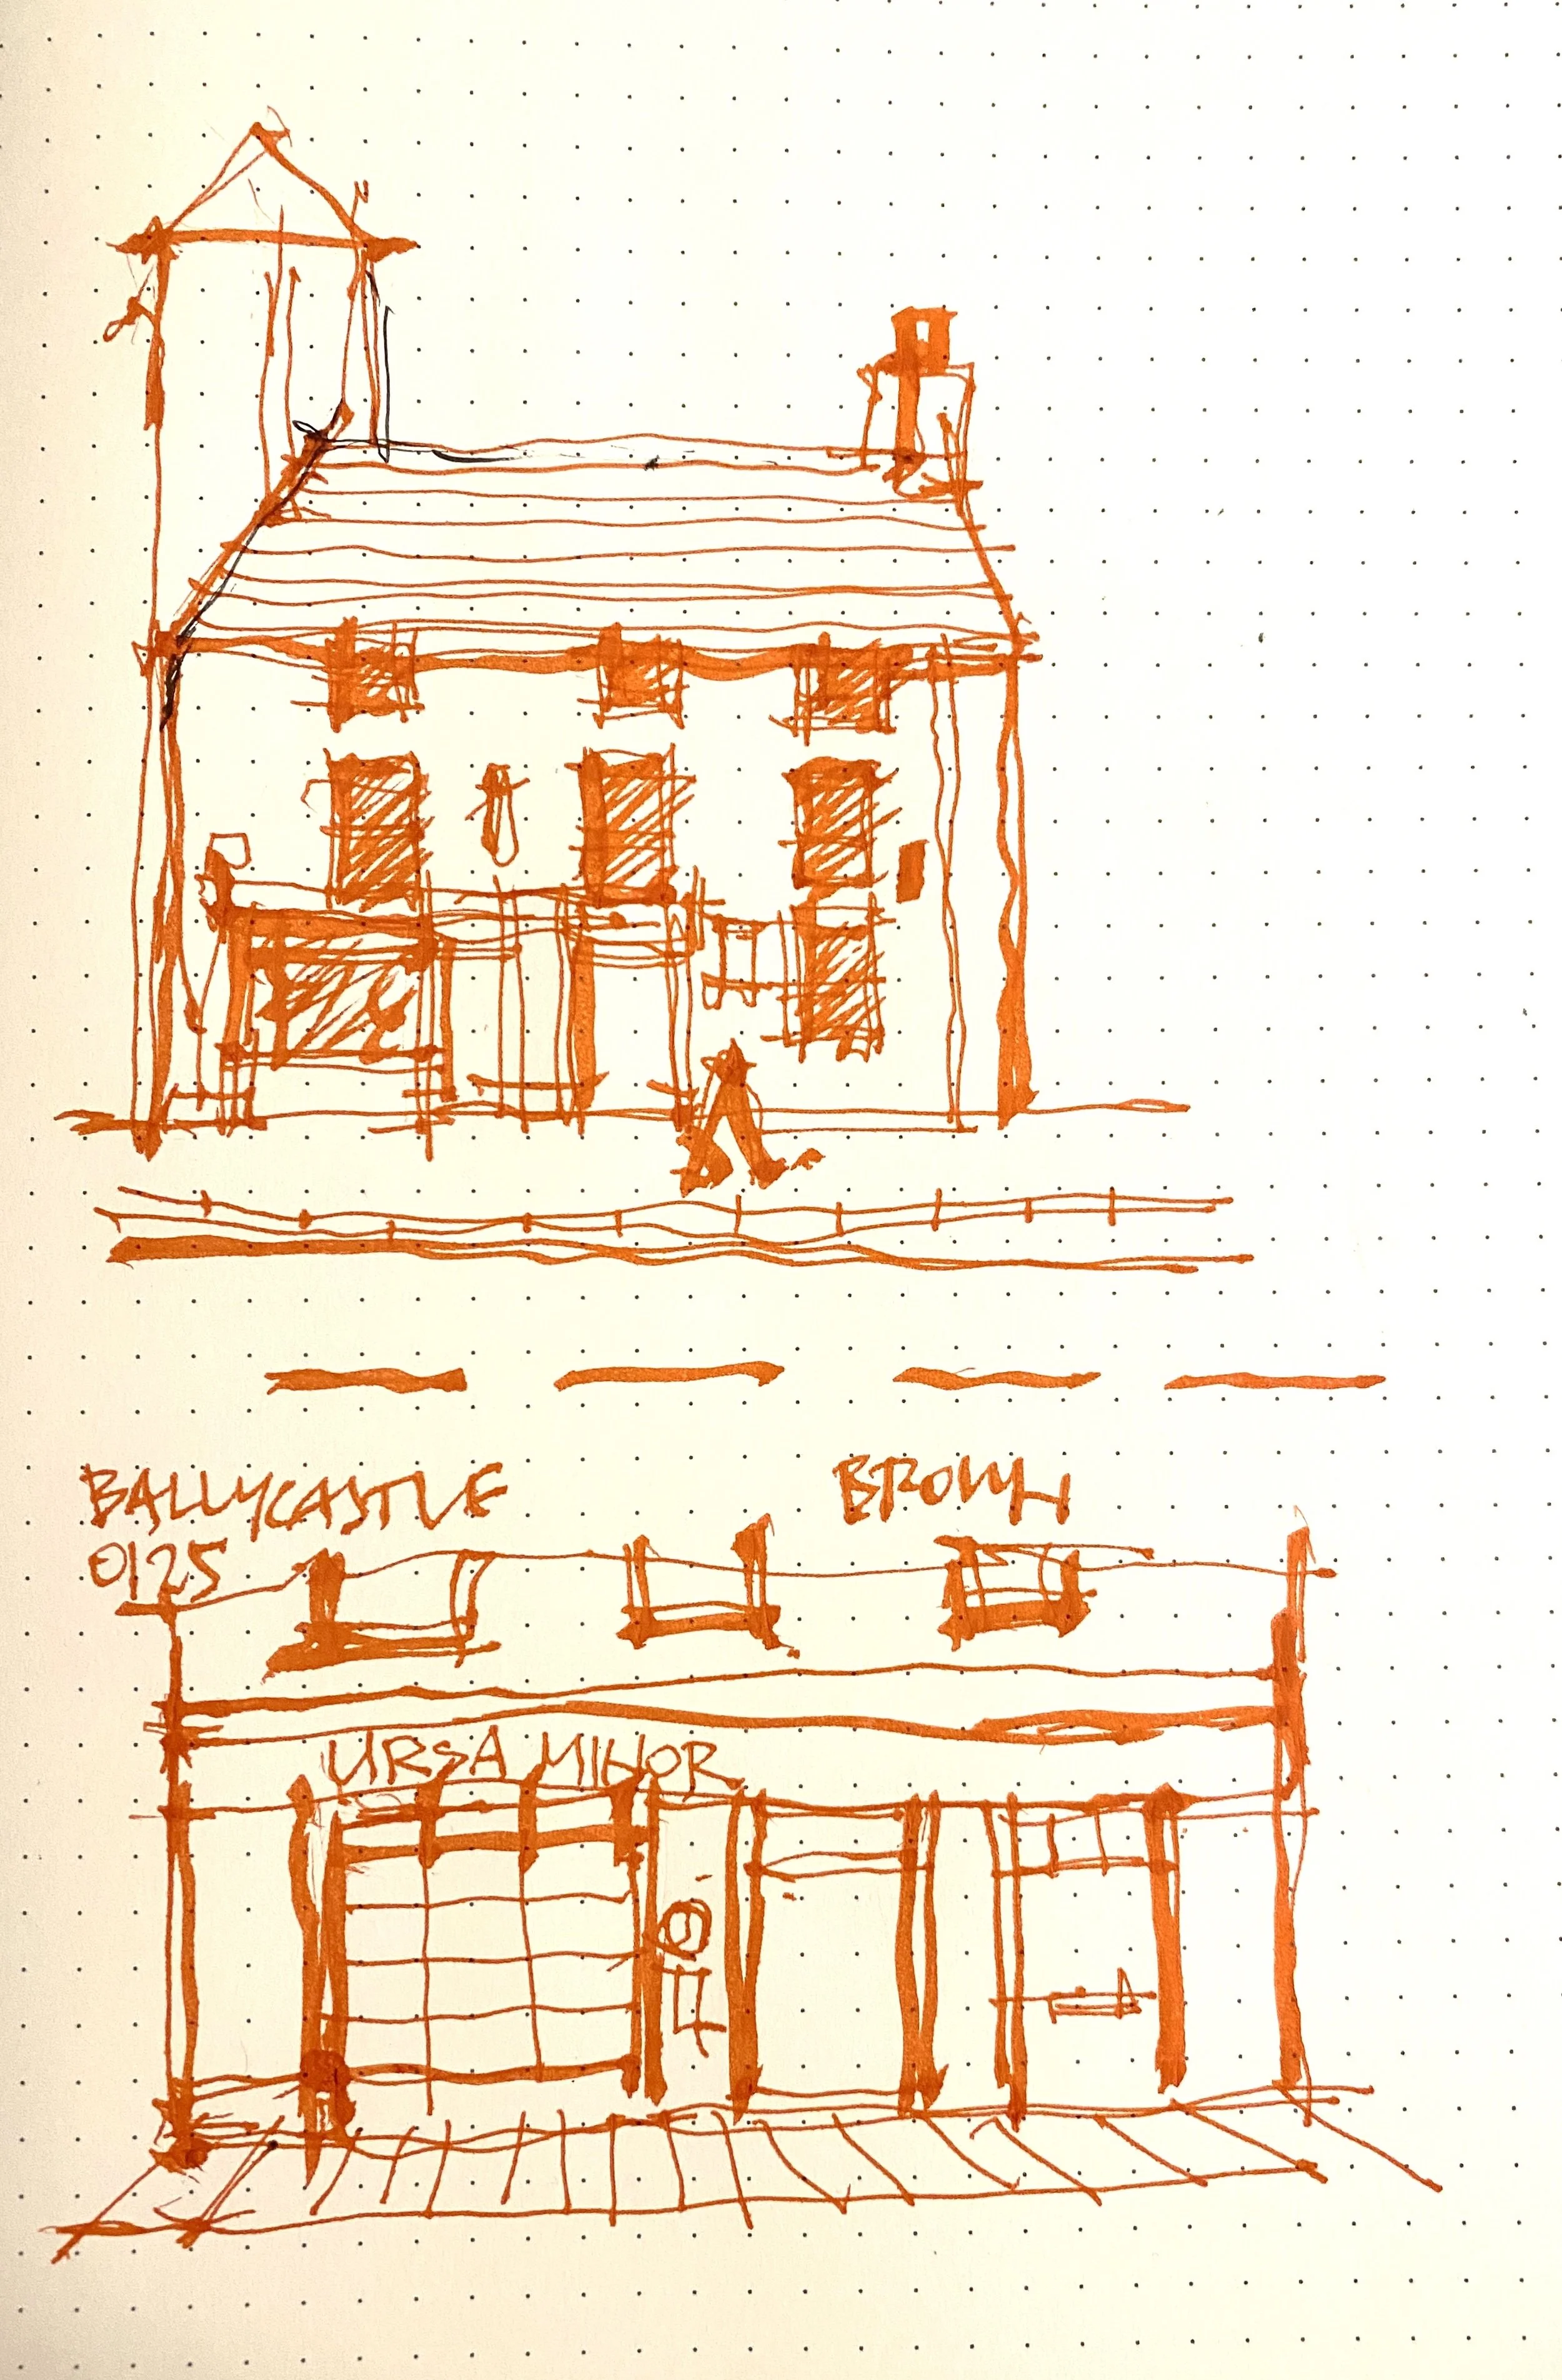 BALLYCASTLE
0125
BROWN
URSA MINOR